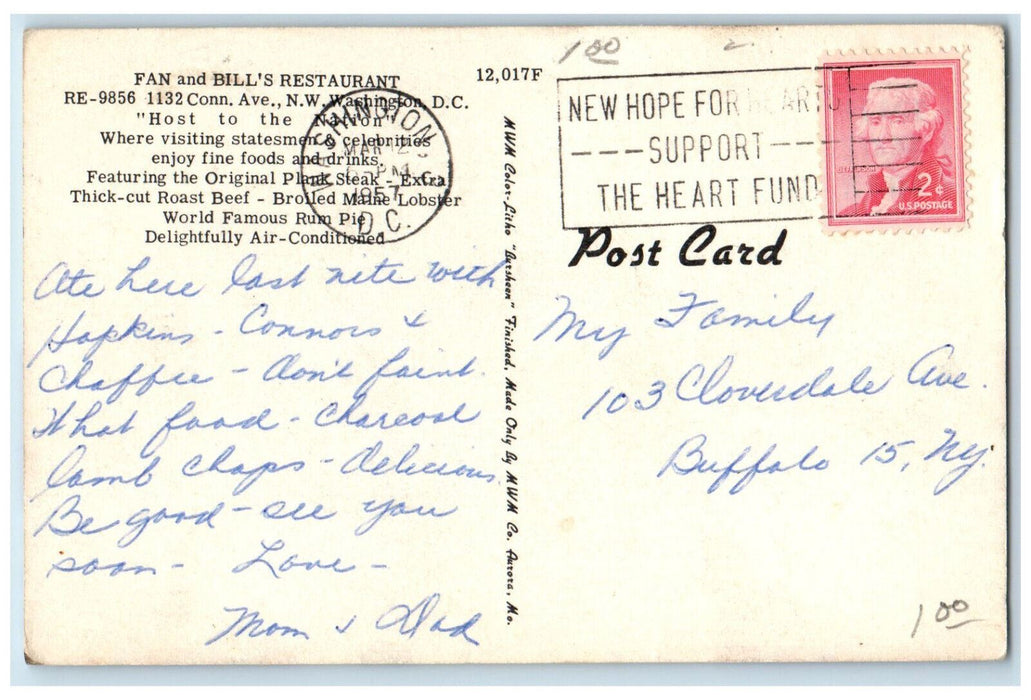 FAN and BILL'S RESTAURANT
RE-9856 1132 Conn. Ave., N.W. Washington, D.C.
"Host to the Nation"
Where visiting statesmen & celebrities
enjoy fine foods and drinks.
Featuring the Original Plank Steak - Extra
Thick-cut Roast Beef - Broiled Maine Lobster
World Famous Rum Pie
Delightfully Air-Conditioned
WASHINGTON
MAR 12
PM
1957
D.C.
Ate here last nite with
Hopkins - Connors &
Chaffee - Don't faint.
What food - charcoal
lamb chops - delicious.
Be good - see you
soon - Love -
Mom & Dad
12,017F
MWM Color-Litho "Bursheen" Finished, Made Only By MWM Co. Aurora, Mo.
1 00
2
NEW HOPE FOR HEARTS
SUPPORT
THE HEART FUND
2¢
U.S. POSTAGE
Post Card
My Family
103 Cloverdale Ave.
Buffalo 15, Ny.
1 00